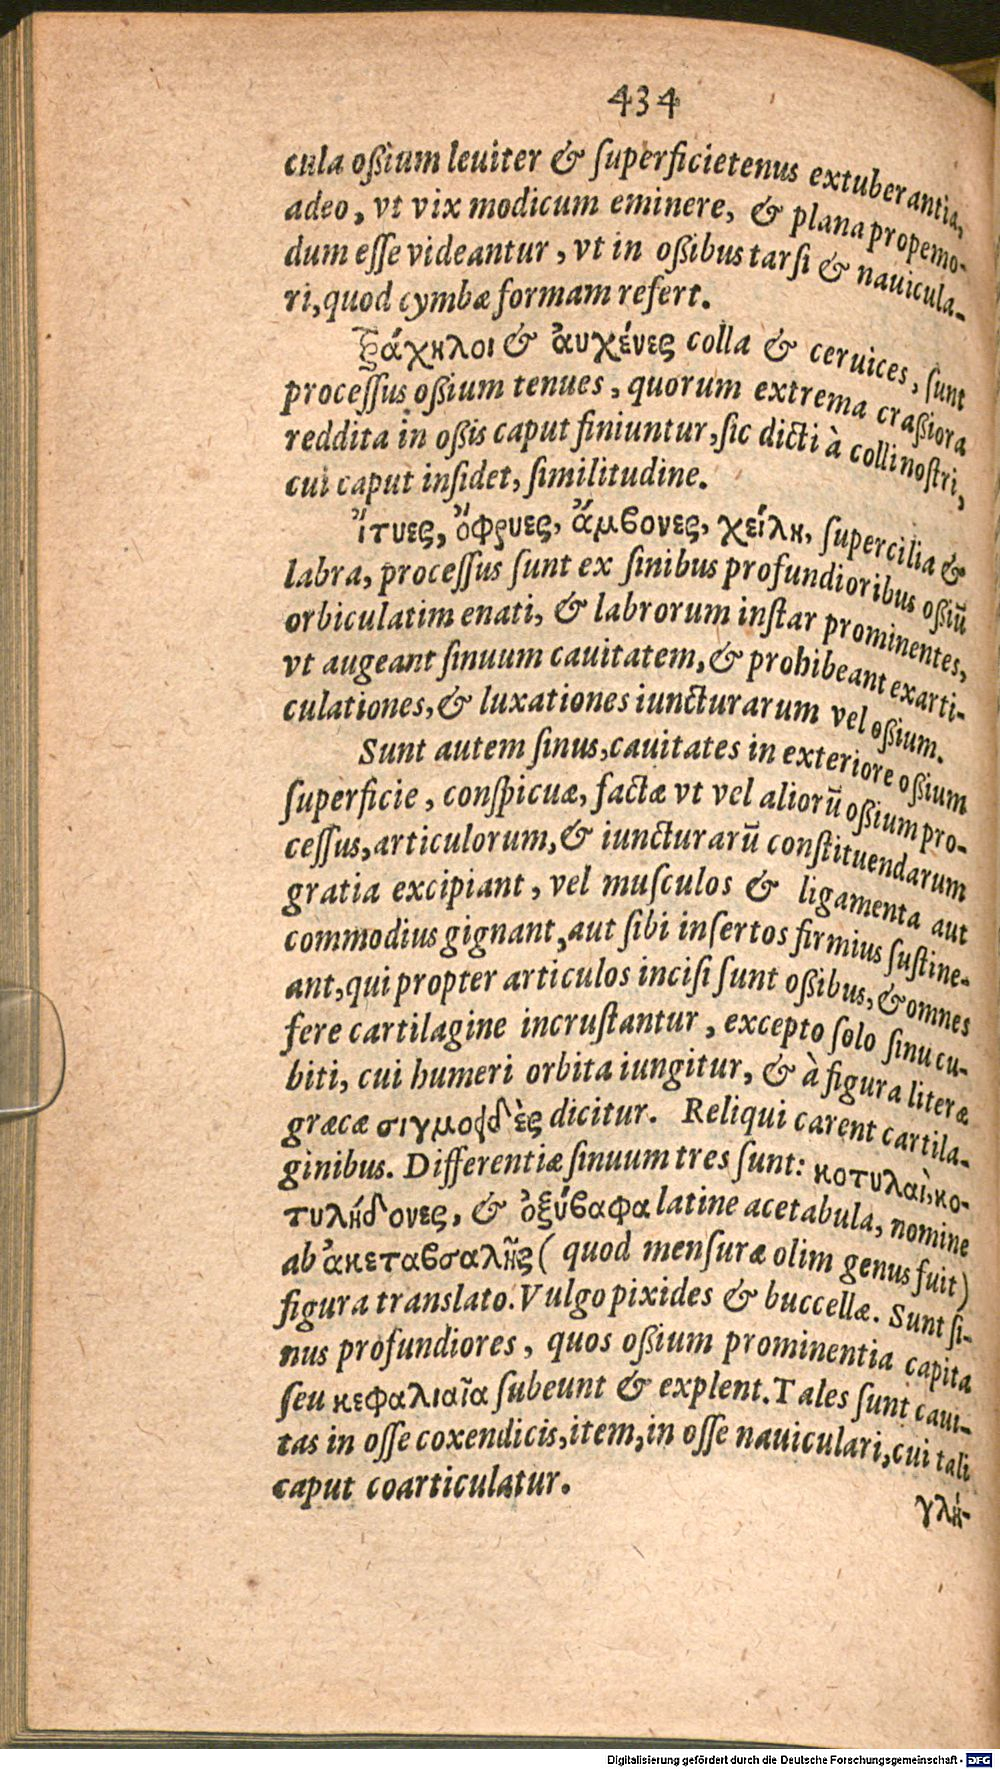 434
cula oßium leuiter & ſuperficietenus extuberantia,
adeo, vt vix modicum eminere, & plana propemo-
dum eſſe videantur, vt in oßibus tarſi & nauicula-
ri, quod cymbæ formam refert.
τράχηλοι & ἀυχένες colla & ceruices, ſunt
proceſſus oßium tenues, quorum extrema craßiora
reddita in oßis caput finiuntur, ſic dicti à colli noſtri,
cui caput inſidet, ſimilitudine.
ἴτυες, ὄφρυες, ἄμβονες, χείλη, ſupercilia &
labra, proceſſus ſunt ex ſinibus profundioribus oßiũ
orbiculatim enati, & labrorum inſtar prominentes,
vt augeant ſinuum cauitatem, & prohibeant exarti-
culationes, & luxationes iuncturarum vel oßium.
Sunt autem ſinus, cauitates in exteriore oßium
ſuperficie, conſpicuæ, factæ vt vel aliorũ oßium pro-
ceſſus, articulorum, & iuncturarũ conſtituendarum
gratia excipiant, vel muſculos & ligamenta aut
commodius gignant, aut ſibi inſertos firmius ſuſtine-
ant, qui propter articulos inciſi ſunt oßibus, & omnes
fere cartilagine incruſtantur, excepto ſolo ſinu cu-
biti, cui humeri orbita iungitur, & à figura literæ
græcæ σιγμοειδὲς dicitur. Reliqui carent cartila-
ginibus. Differentiæ ſinuum tres ſunt: κοτυλαὶ, κο-
τυλήδονες, & ὀξύβαφα latine acetabula, nomine
ab ἀκεταβσαλῆς ( quod menſuræ olim genus fuit )
figura translato. Vulgo pixides & buccellæ. Sunt ſi-
nus profundiores, quos oßium prominentia capita
ſeu κεφαλιαῖα ſubeunt & explent. Tales ſunt caui-
tas in oſſe coxendicis, item, in oſſe nauiculari, cui tali
caput coarticulatur.
γλή-
Digitalisierung gefördert durch die Deutsche Forschungsgemeinschaft - DFG